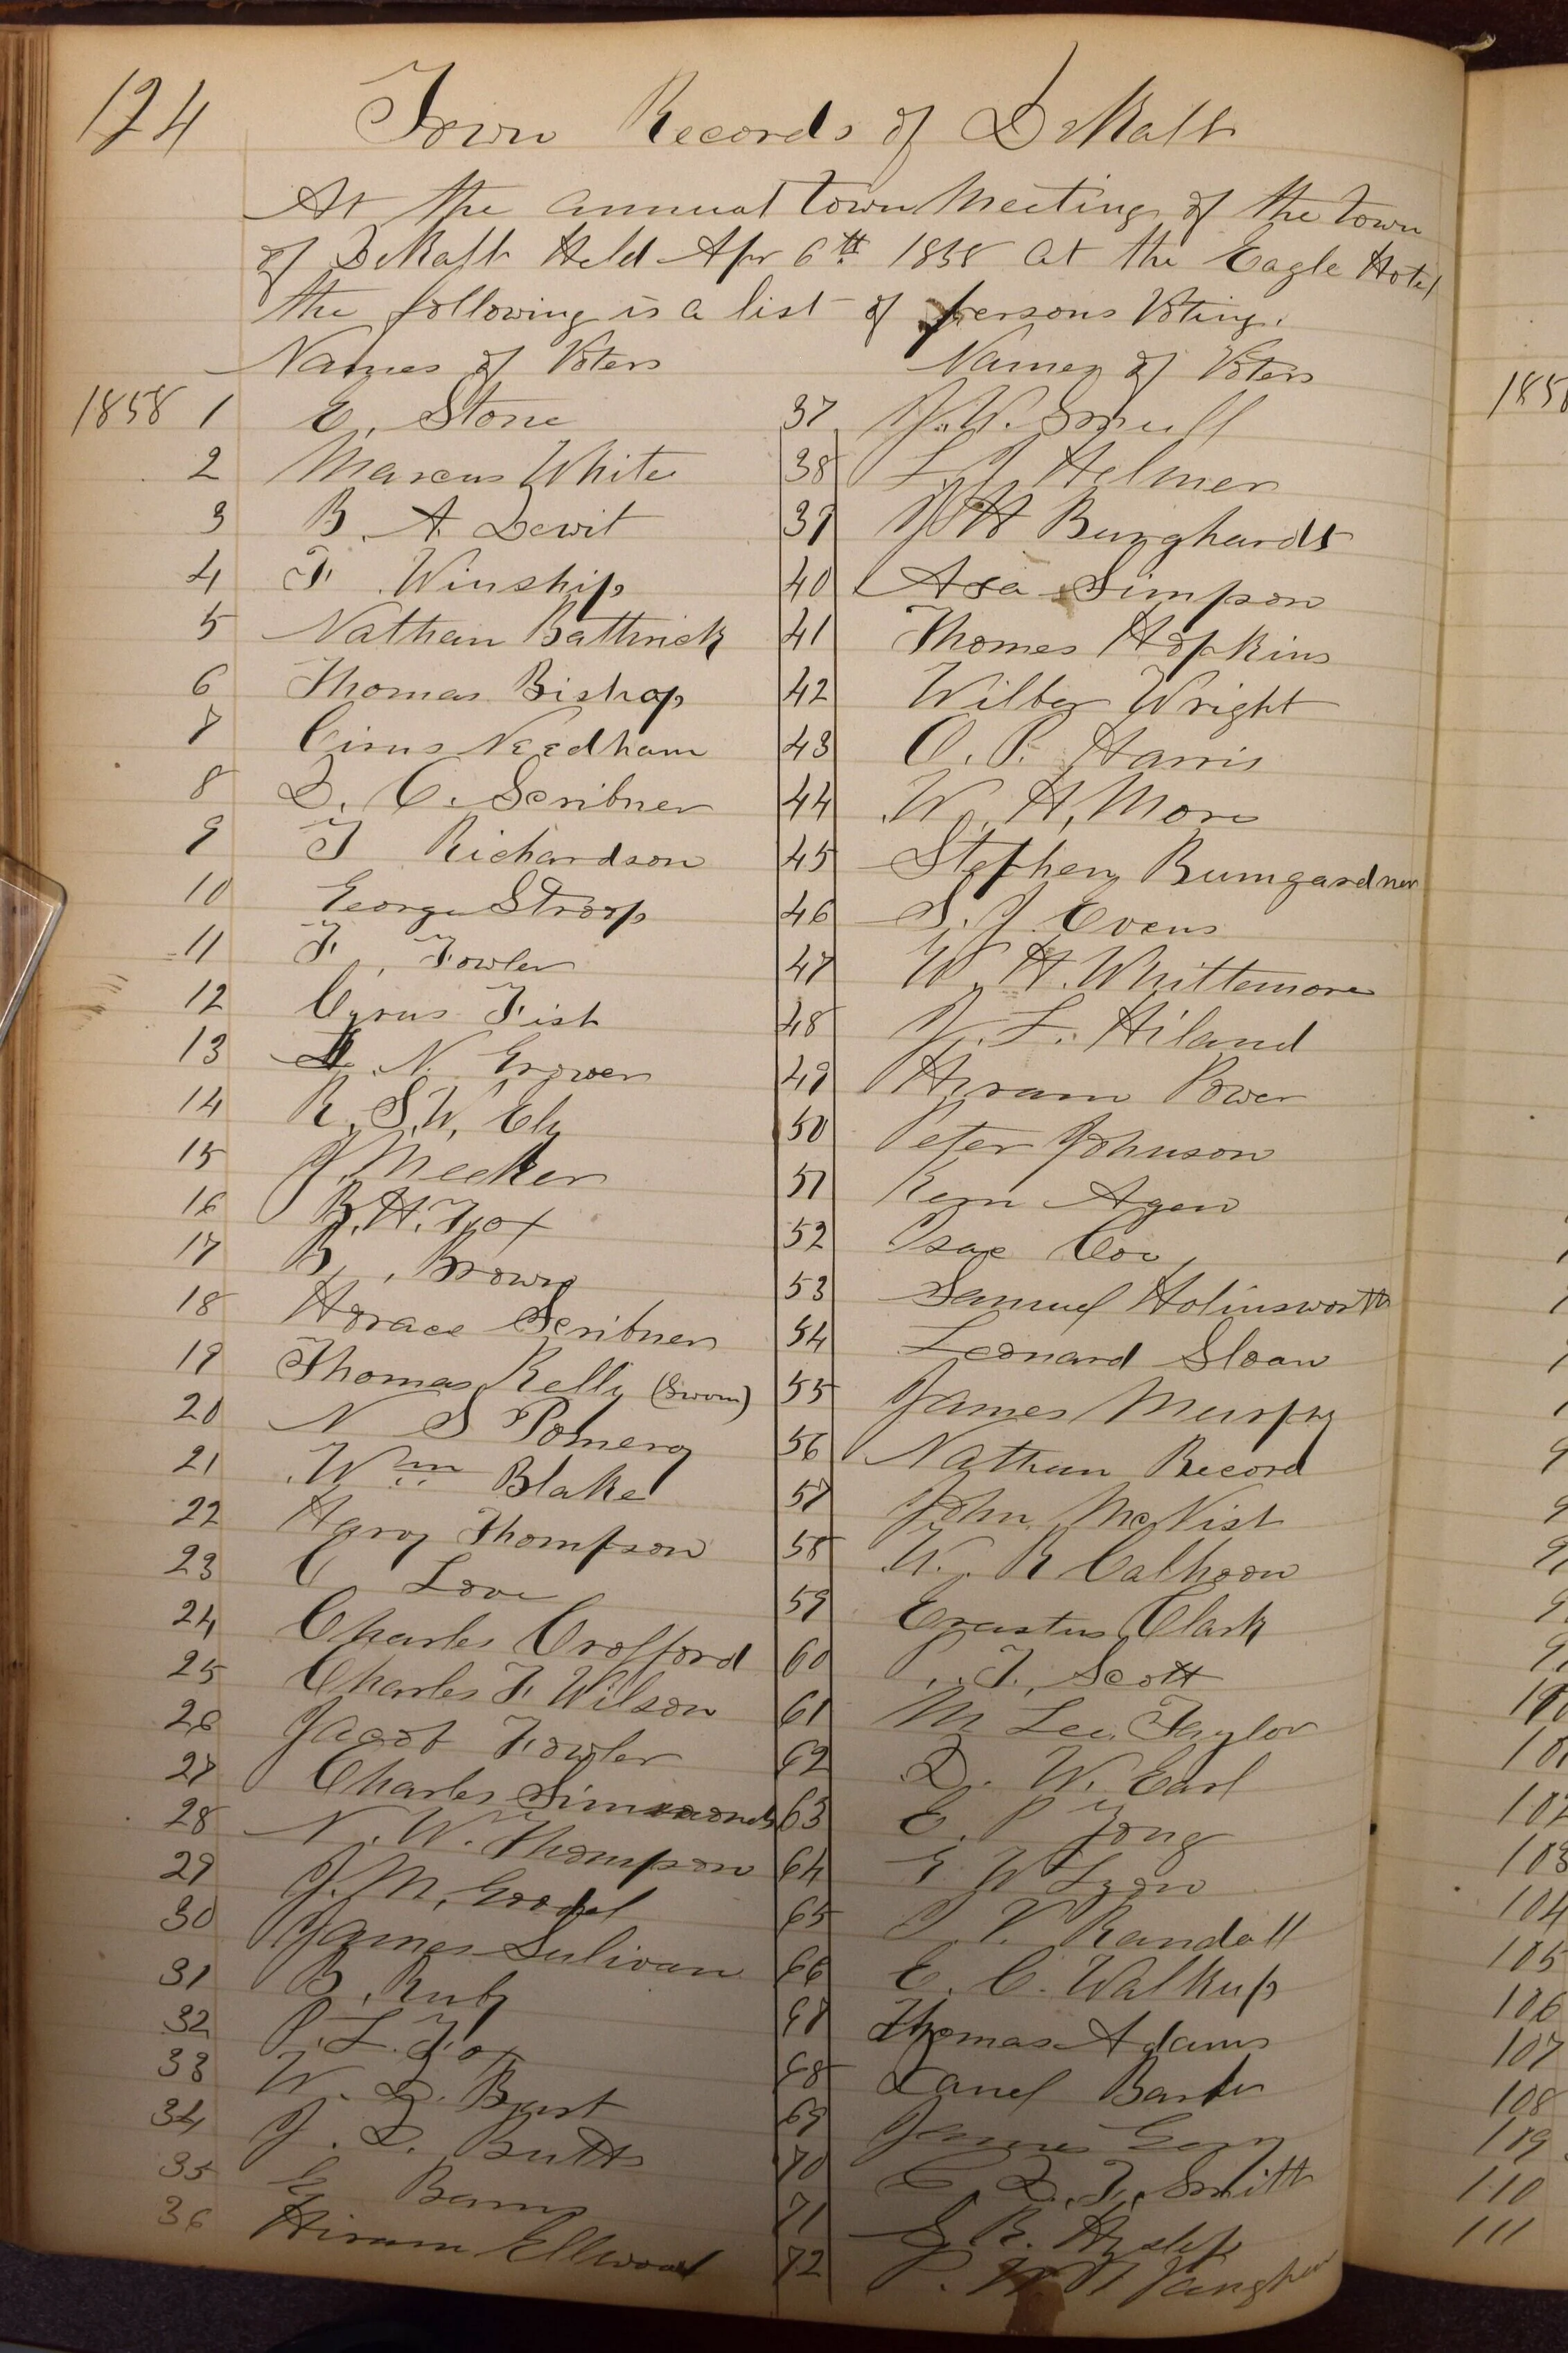 124 Town Records of DeKalb
At the annual town Meeting of the town
of DeKalb Held Apr 6th 1858 at the Eagle Hotel
the following is a list of persons Voting.
Names of Voters
1858 1 E. Stone
2 Marcus White
3 B. A. Dewit
4 F. Winship
5 Nathan Battrick
6 Thomas Bishop
7 Cirus Needham
8 D. C. Scribner
9 T Richardson
10 George Stroop
11 F. Fowler
12 Cyrus Fisk
13 N. Grower
14 R. S. W. Ely
15 J. Meeker
16 B. H. Fox
17 B. Brown
18 Horace Scribner
19 Thomas Kelly (Sworn)
20 N S Pomeroy
21 Wm Blake
22 Harvy Thompson
23 C Love
24 Charles Crofford
25 Charles F. Wilson
26 Jacob Fowler
27 Charles Simmonds
28 N. W. Thompson
29 J. M. Goodel
30 James Sulivan
31 B. Ruby
32 P. L. Fox
33 W. D. Bast
34 J. D. Butts
35 Barns
36 Hiram Ellwood
Names of Voters
37 J. W. Smull
38 L. J Helmer
39 J H Burghardt
40 Asa Simpson
41 Thomes Hopkins
42 Wilber Wright
43 O. P. Harris
44 W. H. More
45 Stephen Bumgardner
46 S. J. Evens
47 W. H. Whittemore
48 J. L. Hiland
49 Hiram Power
50 Peter Johnson
51 Kern Agen
52 Isac Coe
53 Samuel Holinsworth
54 Leonard Sloan
55 James Murphy
56 Nathan Record
57 John McNist
58 W. R Calhoon
59 Erastus Clark
60 P. T. Scott
61 M Lee Taylor
62 D. W. Earl
63 E. P Young
64 E. W Lyon
65 P. V. Randall
66 E. C. Walkup
67 Thomas Adams
68 Danel Barber
69 James Gory
70 C D. F. Smith
71 S R. Hyslip
72 P. Vaughan
185
102
103
104
105
106
107
108
109
110
111